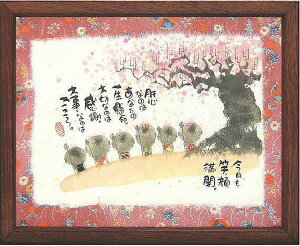 肝心
なのは
あなたの
一生懸命。
大切なのは
感謝。
大事なのは
こころ。
今日も
笑顔
満開。